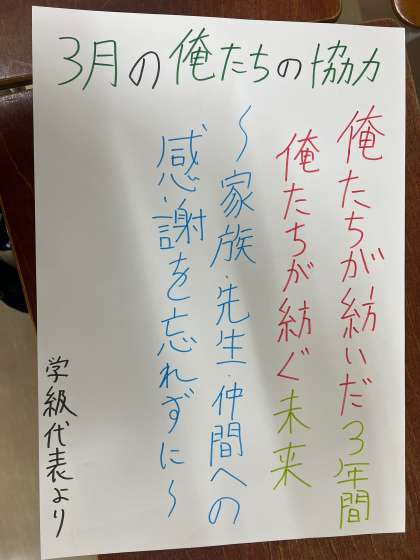 3月の俺たちの協力
俺たちが紡いだ3年間
俺たちが紡ぐ未来
～家族・先生・仲間への
感謝を忘れずに～
学級代表より